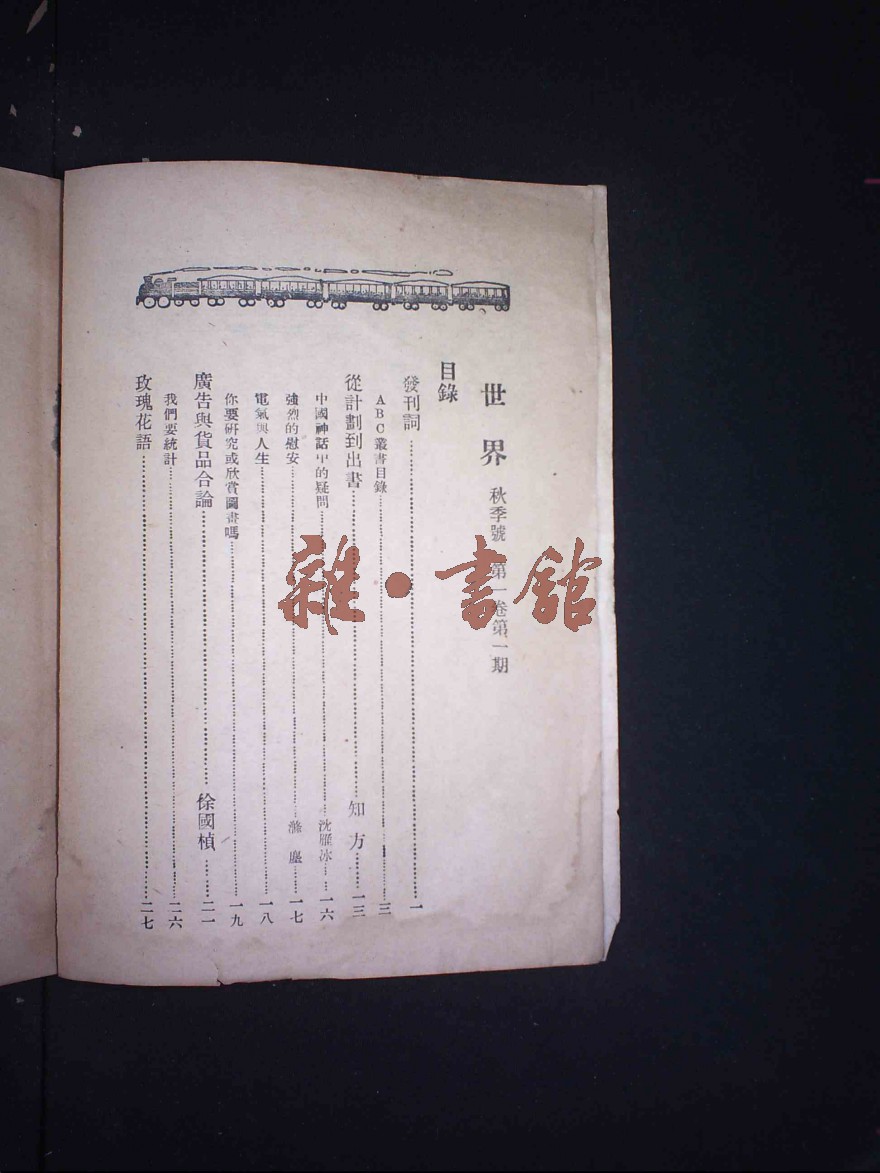 世界 秋季號 第一卷第一期
目錄
發刊詞……一
ABC叢書目錄……三
從計劃到出書……知方……一三
中國神話中的疑問……沈雁冰……一六
強烈的慰安……滌塵……一七
電氣與人生……一八
你要研究或欣賞圖畫嗎……一九
廣告與貨品合論……徐國楨……二一
我們要統計……二六
玫瑰花語……二七
雜·書館